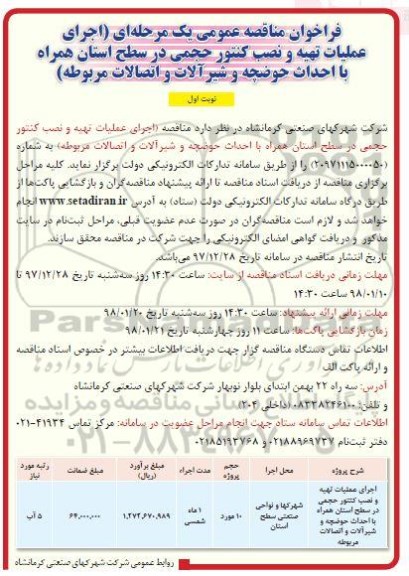 فراخوان مناقصه عمومی یک مرحله‌ای (اجرای
عملیات تهیه و نصب کنتور حجمی در سطح استان همراه
با احداث حوضچه و شیرآلات و اتصالات مربوطه)
نوبت اول
شرکت شهرکهای صنعتی کرمانشاه در نظر دارد مناقصه (اجرای عملیات تهیه و نصب کنتور
حجمی در سطح استان همراه با احداث حوضچه و شیرآلات و اتصالات مربوطه) به شماره
(۲۰۹۷۱۱۱۵۰۰۰۰۵۰) را از طریق سامانه تدارکات الکترونیکی دولت برگزار نماید. کلیه مراحل
برگزاری مناقصه از دریافت اسناد مناقصه تا ارائه پیشنهاد مناقصه‌گران و بازگشایی پاکت‌ها از
طریق درگاه سامانه تدارکات الکترونیکی دولت (ستاد) به آدرس www.setadiran.ir انجام
خواهد شد و لازم است مناقصه‌گران در صورت عدم عضویت قبلی، مراحل ثبت‌نام در سایت
مذکور و دریافت گواهی امضای الکترونیکی را جهت شرکت در مناقصه محقق سازند.
تاریخ انتشار مناقصه در سامانه تاریخ ۹۷/۱۲/۲۸ می‌باشد.
مهلت زمانی دریافت اسناد مناقصه از سایت: ساعت ۱۴:۳۰ روز سه‌شنبه تاریخ ۹۷/۱۲/۲۸ تا
۹۸/۰۱/۱۰ ساعت ۱۴:۳۰
مهلت زمانی ارائه پیشنهاد: ساعت ۱۴:۳۰ روز سه‌شنبه تاریخ ۹۸/۰۱/۲۰
زمان بازگشایی پاکت‌ها: ساعت ۱۱ روز چهارشنبه تاریخ ۹۸/۰۱/۲۱
اطلاعات تماس دستگاه مناقصه گزار جهت دریافت اطلاعات بیشتر در خصوص اسناد مناقصه
و ارائه پاکت الف
آدرس: سه راه ۲۲ بهمن ابتدای بلوار نوبهار شرکت شهرکهای صنعتی کرمانشاه
و تلفن: ۰۸۳۳۸۲۴۶۱۰۰ (داخلی ۲۰۴)
اطلاعات تماس سامانه ستاد جهت انجام مراحل عضویت در سامانه: مرکز تماس ۴۱۹۳۴-۰۲۱
دفتر ثبت‌نام ۰۲۱۸۸۹۶۹۷۳۷ و ۰۲۱۸۵۱۹۳۷۶۸
شرح پروژه محل اجرا حجم پروژه مدت اجراء مبلغ برآورد (ریال) مبلغ ضمانت رتبه مورد نیاز
اجرای عملیات تهیه و نصب کنتور حجمی در سطح استان همراه با احداث حوضچه و شیرآلات و اتصالات مربوطه شهرکها و نواحی صنعتی سطح استان ۱۰ مورد ۱ ماه شمسی ۱,۲۷۲,۶۷۰,۹۸۹ ۶۴,۰۰۰,۰۰۰ ۵ آب
روابط عمومی شرکت شهرکهای صنعتی کرمانشاه